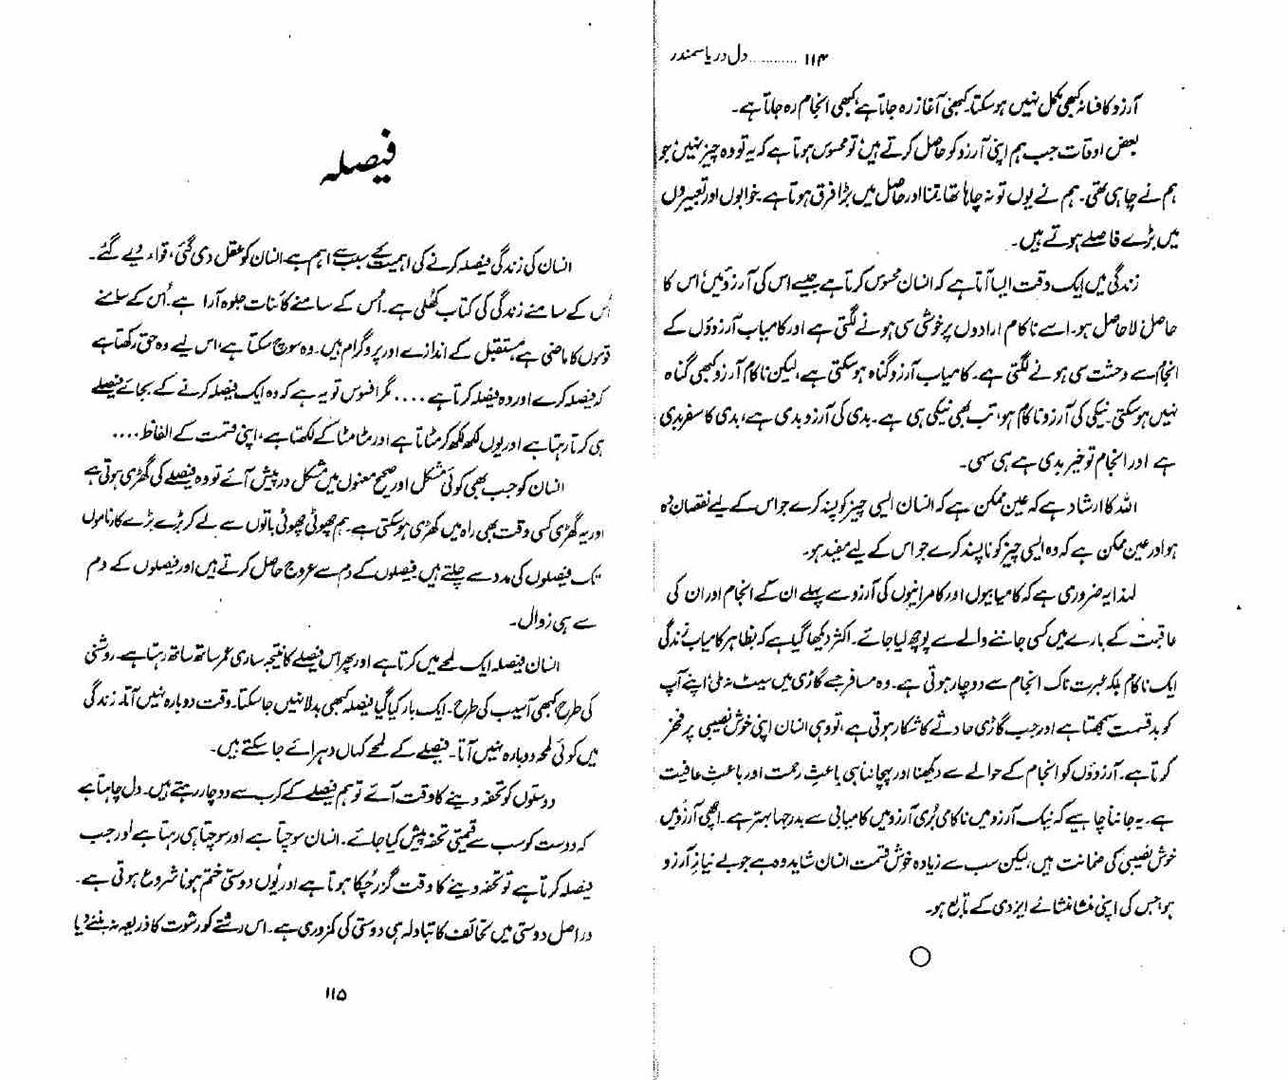 ۱۱۴ ............ دل دریا سمندر
آرزو کا فسانہ کبھی مکمل نہیں ہو سکتا۔ کبھی آغاز رہ جاتا ہے، کبھی انجام رہ جاتا ہے۔
بعض اوقات جب ہم اپنی آرزو کو حاصل کرتے ہیں، تو محسوس ہوتا ہے کہ یہ تو وہ چیز نہیں، جو
ہم نے چاہی تھی۔ ہم نے یوں تو نہ چاہا تھا۔ تمنا اور حاصل میں بڑا فرق ہوتا ہے۔ خوابوں اور تعبیروں
میں بڑے فاصلے ہوتے ہیں۔
زندگی میں ایک وقت ایسا آتا ہے کہ انسان محسوس کرتا ہے جیسے اس کی آرزوئیں، اس کا
حاصل، لاحاصل ہو۔ اسے ناکام ارادوں پر خوشی سی ہونے لگتی ہے اور کامیاب آرزوؤں کے
انجام سے وحشت سی ہونے لگتی ہے۔ کامیاب آرزو گناہ ہو سکتی ہے، لیکن ناکام آرزو کبھی گناہ
نہیں ہو سکتی۔ نیکی کی آرزو ناکام ہو، تب بھی نیکی ہی ہے۔ بدی کی آرزو بدی ہے، بدی کا سفر بدی
ہے اور انجام تو خیر بدی ہے ہی سہی۔
اللہ کا ارشاد ہے کہ عین ممکن ہے کہ انسان ایسی چیز کو پسند کرے جو اس کے لیے نقصان دہ
ہو اور عین ممکن ہے کہ وہ ایسی چیز کو ناپسند کرے جو اس کے لیے مفید ہو۔
لہٰذا یہ ضروری ہے کہ کامیابیوں اور کامرانیوں کی آرزو سے پہلے ان کے انجام اور ان کی
عاقبت کے بارے میں کسی جاننے والے سے پوچھ لیا جائے۔ اکثر دیکھا گیا ہے کہ بظاہر کامیاب زندگی
ایک ناکام بلکہ عبرت ناک انجام سے دوچار ہوتی ہے۔ وہ مسافر جسے گاڑی میں سیٹ نہ ملی، اپنے آپ
کو بدقسمت سمجھتا ہے اور جب گاڑی حادثے کا شکار ہوتی ہے، تو وہی انسان اپنی خوش نصیبی پر فخر
کرتا ہے۔ آرزوؤں کو انجام کے حوالے سے دیکھنا اور پہچاننا ہی باعثِ رحمت اور باعثِ عافیت
ہے۔ یہ جاننا چاہیے کہ نیک آرزو میں ناکامی بُری آرزو میں کامیابی سے بدرجہا بہتر ہے۔ اچھی آرزوئیں
خوش نصیبی کی ضمانت ہیں، لیکن سب سے زیادہ خوش قسمت انسان شاید وہ ہے جو بے نیازِ آرزو
ہو، جس کی اپنی منشا منشائے ایزدی کے تابع ہو۔
فیصلہ
انسان کی زندگی فیصلہ کرنے کی اہمیت کے سبب سے اہم ہے۔ انسان کو عقل دی گئی، قواء دیے گئے۔
اُس کے سامنے زندگی کی کتاب کھلی ہے۔ اُس کے سامنے کائنات جلوہ آرا ہے۔ اُس کے سامنے
قوموں کا ماضی ہے، مستقبل کے اندازے اور پروگرام ہیں۔ وہ سوچ سکتا ہے، اس لیے وہ حق رکھتا ہے
کہ فیصلہ کرے اور وہ فیصلہ کرتا ہے .... مگر افسوس تو یہ ہے کہ وہ ایک فیصلہ کرنے کے بجائے فیصلے
ہی کرتا رہتا ہے اور یوں لکھ لکھ کر مٹاتا ہے اور مٹا مٹا کے لکھتا ہے، اپنی قسمت کے الفاظ ....
انسان کو جب بھی کوئی مشکل اور صحیح معنوں میں مشکل درپیش آئے تو وہ فیصلے کی گھڑی ہوتی ہے
اور یہ گھڑی کسی وقت بھی راہ میں کھڑی ہو سکتی ہے۔ ہم چھوٹی چھوٹی باتوں سے لے کر بڑے بڑے کارناموں
تک فیصلوں کی مدد سے چلتے ہیں۔ فیصلوں کے دم سے عروج حاصل کرتے ہیں اور فیصلوں کے دم
سے ہی زوال۔
انسان فیصلہ ایک لمحے میں کرتا ہے اور پھر اس فیصلے کا نتیجہ ساری عمر ساتھ ساتھ رہتا ہے۔ روشنی
کی طرح، کبھی آسیب کی طرح۔ ایک بار کیا گیا فیصلہ کبھی بدلا نہیں جا سکتا۔ وقت دوبارہ نہیں آتا۔ زندگی
میں کوئی لمحہ دوبارہ نہیں آتا۔ فیصلے کے لمحے کہاں دہرائے جا سکتے ہیں۔
دوستوں کو تحفہ دینے کا وقت آئے تو ہم فیصلے کے کرب سے دوچار رہتے ہیں۔ دل چاہتا ہے
کہ دوست کو سب سے قیمتی تحفہ پیش کیا جائے۔ انسان سوچتا ہے اور سوچتا ہی رہتا ہے اور جب
فیصلہ کرتا ہے تو تحفہ دینے کا وقت گزر چکا ہوتا ہے اور یُوں دوستی ختم ہونا شروع ہوتی ہے۔
دراصل دوستی میں تحائف کا تبادلہ ہی دوستی کی کمزوری ہے۔ اس رشتے کو رشوت کا ذریعہ نہ بننے دیا
۱۱۵